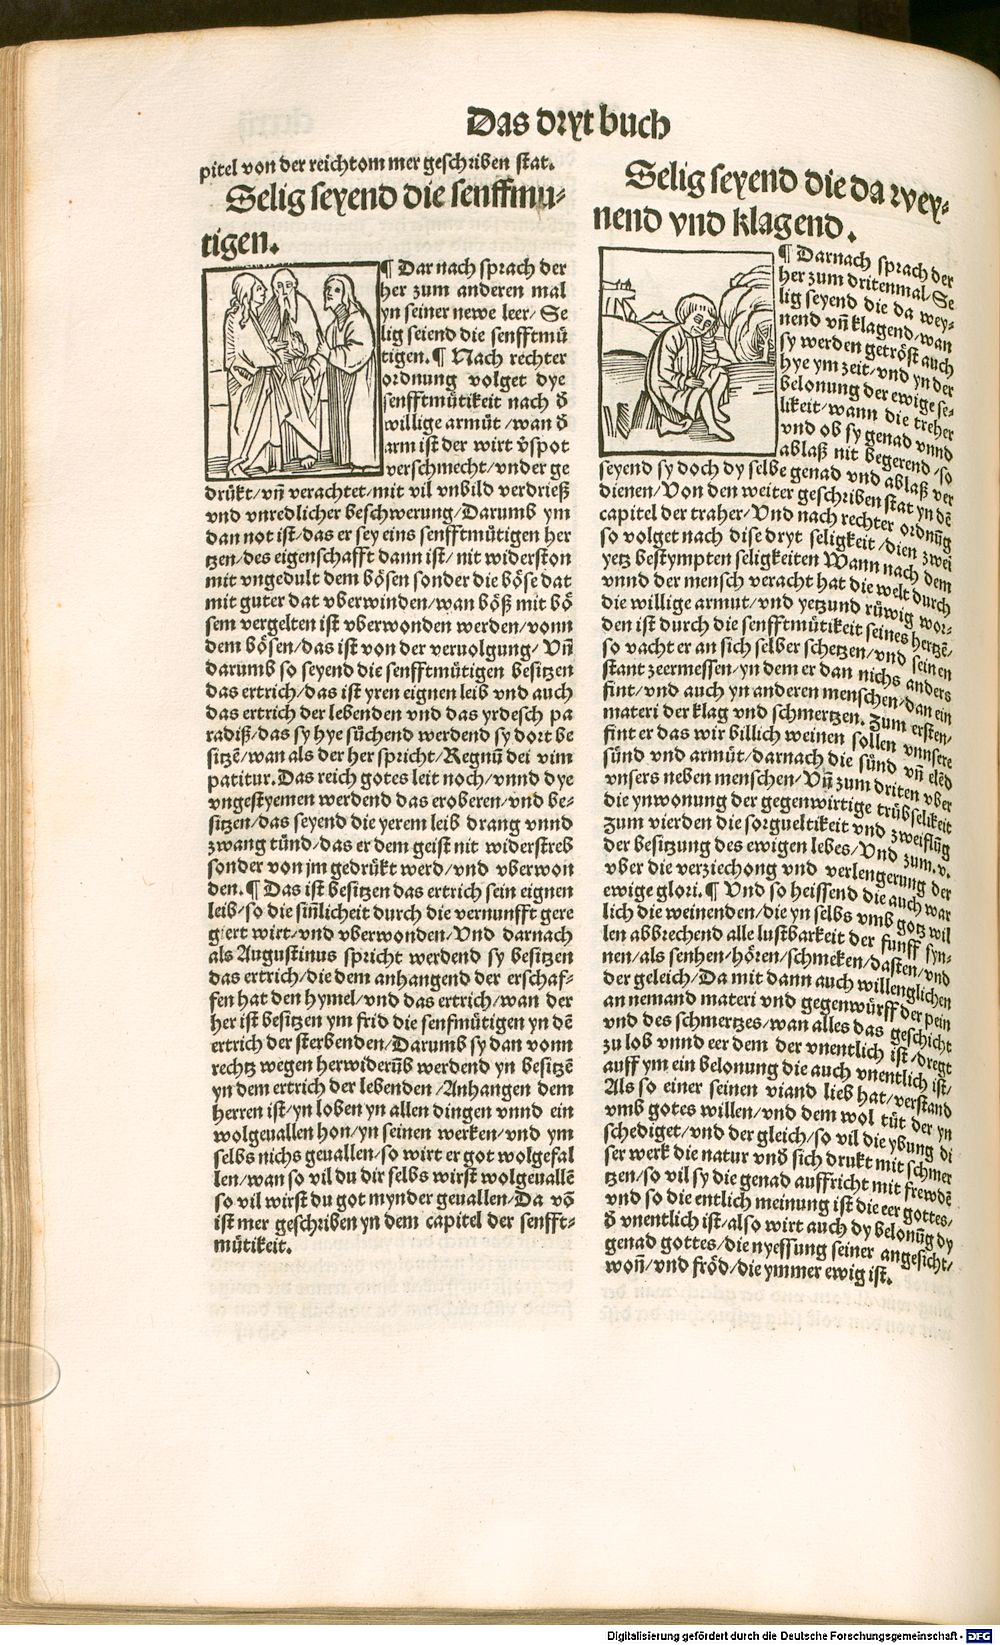 Das dryt buch
pitel von der reichtom mer geschriben stat.
Selig seyend die senffmu-
tigen.
¶ Dar nach sprach der
her zum anderen mal
yn seiner newe leer/ Se
lig seiend die senfftmü
tigen. ¶ Nach rechter
ordnung volget dye
senfftmütikeit nach d̄
willige armüt /wan d̄
arm ist der wirt v̄spot
verschmecht/vnder ge
drükt/vn̄ verachtet/mit vil vnbild verdrieß
vnd vnredlicher beschwerung/Darumb ym
dan not ist/das er sey eins senfftmütigen her
tzen/des eigenschafft dann ist/ nit widerston
mit vngedult dem bösen sonder die böse dat
mit guter dat vberwinden/wan böß mit bö
sem vergelten ist vberwonden werden/vonn
dem bösen/das ist von der veruolgung/ Vn̄
darumb so seyend die senfftmütigen besitzen
das ertrich/das ist yren eignen leib vnd auch
das ertrich der lebenden vnd das yrdesch pa
radiß/das sy hye süchend werdend sy dort be
sitzē/wan als der her spricht/Regnū dei vim
patitur.Das reich gotes leit noch/vnnd dye
vngestyemen werdend das eroberen/vnd be-
sitzen/das seyend die yerem leib drang vnnd
zwang tünd/das er dem geist nit widerstreb
sonder von jm gedrükt werd/vnd vberwon
den.¶ Das ist besitzen das ertrich sein eignen
leib/so die sin̄licheit durch die vernunfft gere
giert wirt/vnd vberwonden/Vnd darnach
als Augustinus spricht werdend sy besitzen
das ertrich/die dem anhangend der erschaf-
fen hat den hymel/vnd das ertrich/wan der
her ist besitzen ym frid die senfmütigen yn dē
ertrich der sterbenden/Darumb sy dan vonn
rechtz wegen herwiderūb werdend yn besitzē
yn dem ertrich der lebenden /Anhangen dem
herren ist/yn loben yn allen dingen vnnd ein
wolgeuallen hon/yn seinen werken/vnd ym
selbs nichs geuallen/so wirt er got wolgefal
len/wan so vil du dir selbs wirst wolgeuallē
so vil wirst du got mynder geuallen/Da vō
ist mer geschriben yn dem capitel der senfft-
mütikeit.
Selig seyend die da wey-
nend vnd klagend.
¶ Darnach sprach der
her zum dritenmal/Se
lig seyend die da wey-
nend vn̄ klagend/wan
sy werden getröst auch
hye ym zeit/vnd yn der
belonung der ewige se-
likeit/wann die treher
vnd ob sy genad vnnd
ablaß nit begerend /so
seyend sy doch dy selbe genad vnd ablaß ver
dienen/Von den weiter geschriben stat yn dē
capitel der traher/Vnd nach rechter ordnūg
so volget nach dise dryt seligkeit /dien zwei
yetz bestympten seligkeiten Wann nach dem
vnnd der mensch veracht hat die welt durch
die willige armut/vnd yetzund rüwig wor-
den ist durch die senfftmütikeit seines hertzē/
so vacht er an sich selber schetzen/vnd seinen
stant zeermessen/yn dem er dan nichs anders
fint/vnd auch yn anderen menschen/dan ein
materi der klag vnd schmertzen. Zum ersten/
fint er das wir billich weinen sollen vnnsere
sünd vnd armüt/darnach die sünd vn̄ elēd
vnsers neben menschen/Vn̄ zum driten vber
die ynwonung der gegenwirtige trübselikeit
Zum vierden die sorgueltikeit vnd zweiflūg
der besitzung des ewigen lebes/Vnd zum.v.
vber die verziechong vnd verlengerung der
ewige glori.¶ Vnd so heissend die auch war
lich die weinenden/die yn selbs vmb gotz wil
len abbrechend alle lustbarkeit der funff syn-
nen/als senhen/hören/schmeken/dasten/vnd
der geleich/Da mit dann auch willenglichen
an nemand materi vnd gegenwürff der pein
vnd des schmertzes/wan alles das geschicht
zu lob vnnd eer dem der vnentlich ist/dregt
auff ym ein belonung die auch vnentlich ist/
Als so einer seinen viand lieb hat/verstand
vmb gotes willen/vnd dem wol tüt der yn
schediget/vnd der gleich/so vil die ybung di
ser werk die natur vnd̄ sich drukt mit schmer
tzen/so vil sy die genad auffricht mit frewdē
vnd so die entlich meinung ist die eer gottes/
d̄ vnentlich ist/also wirt auch dy belonūg dy
genad gottes/die nyessung seiner angesicht/
won̄/vnd fröd/die ymmer ewig ist.
Digitalisierung gefördert durch die Deutsche Forschungsgemeinschaft - DFG